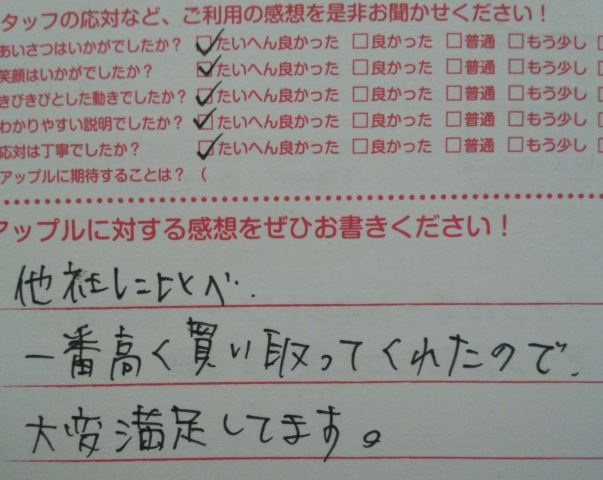 タッフの応対など、ご利用の感想を是非お聞かせください！
あいさつはいかがでしたか？ □たいへん良かった □良かった □普通 □もう少し □
笑顔はいかがでしたか？ □たいへん良かった □良かった □普通 □もう少し □
きびきびとした動きでしたか？ □たいへん良かった □良かった □普通 □もう少し □
わかりやすい説明でしたか？ □たいへん良かった □良かった □普通 □もう少し □
応対は丁寧でしたか？ □たいへん良かった □良かった □普通 □もう少し □
アップルに期待することは？（
アップルに対する感想をぜひお書きください！
他社にくらべ、
一番高く買い取ってくれたので、
大変満足してます。